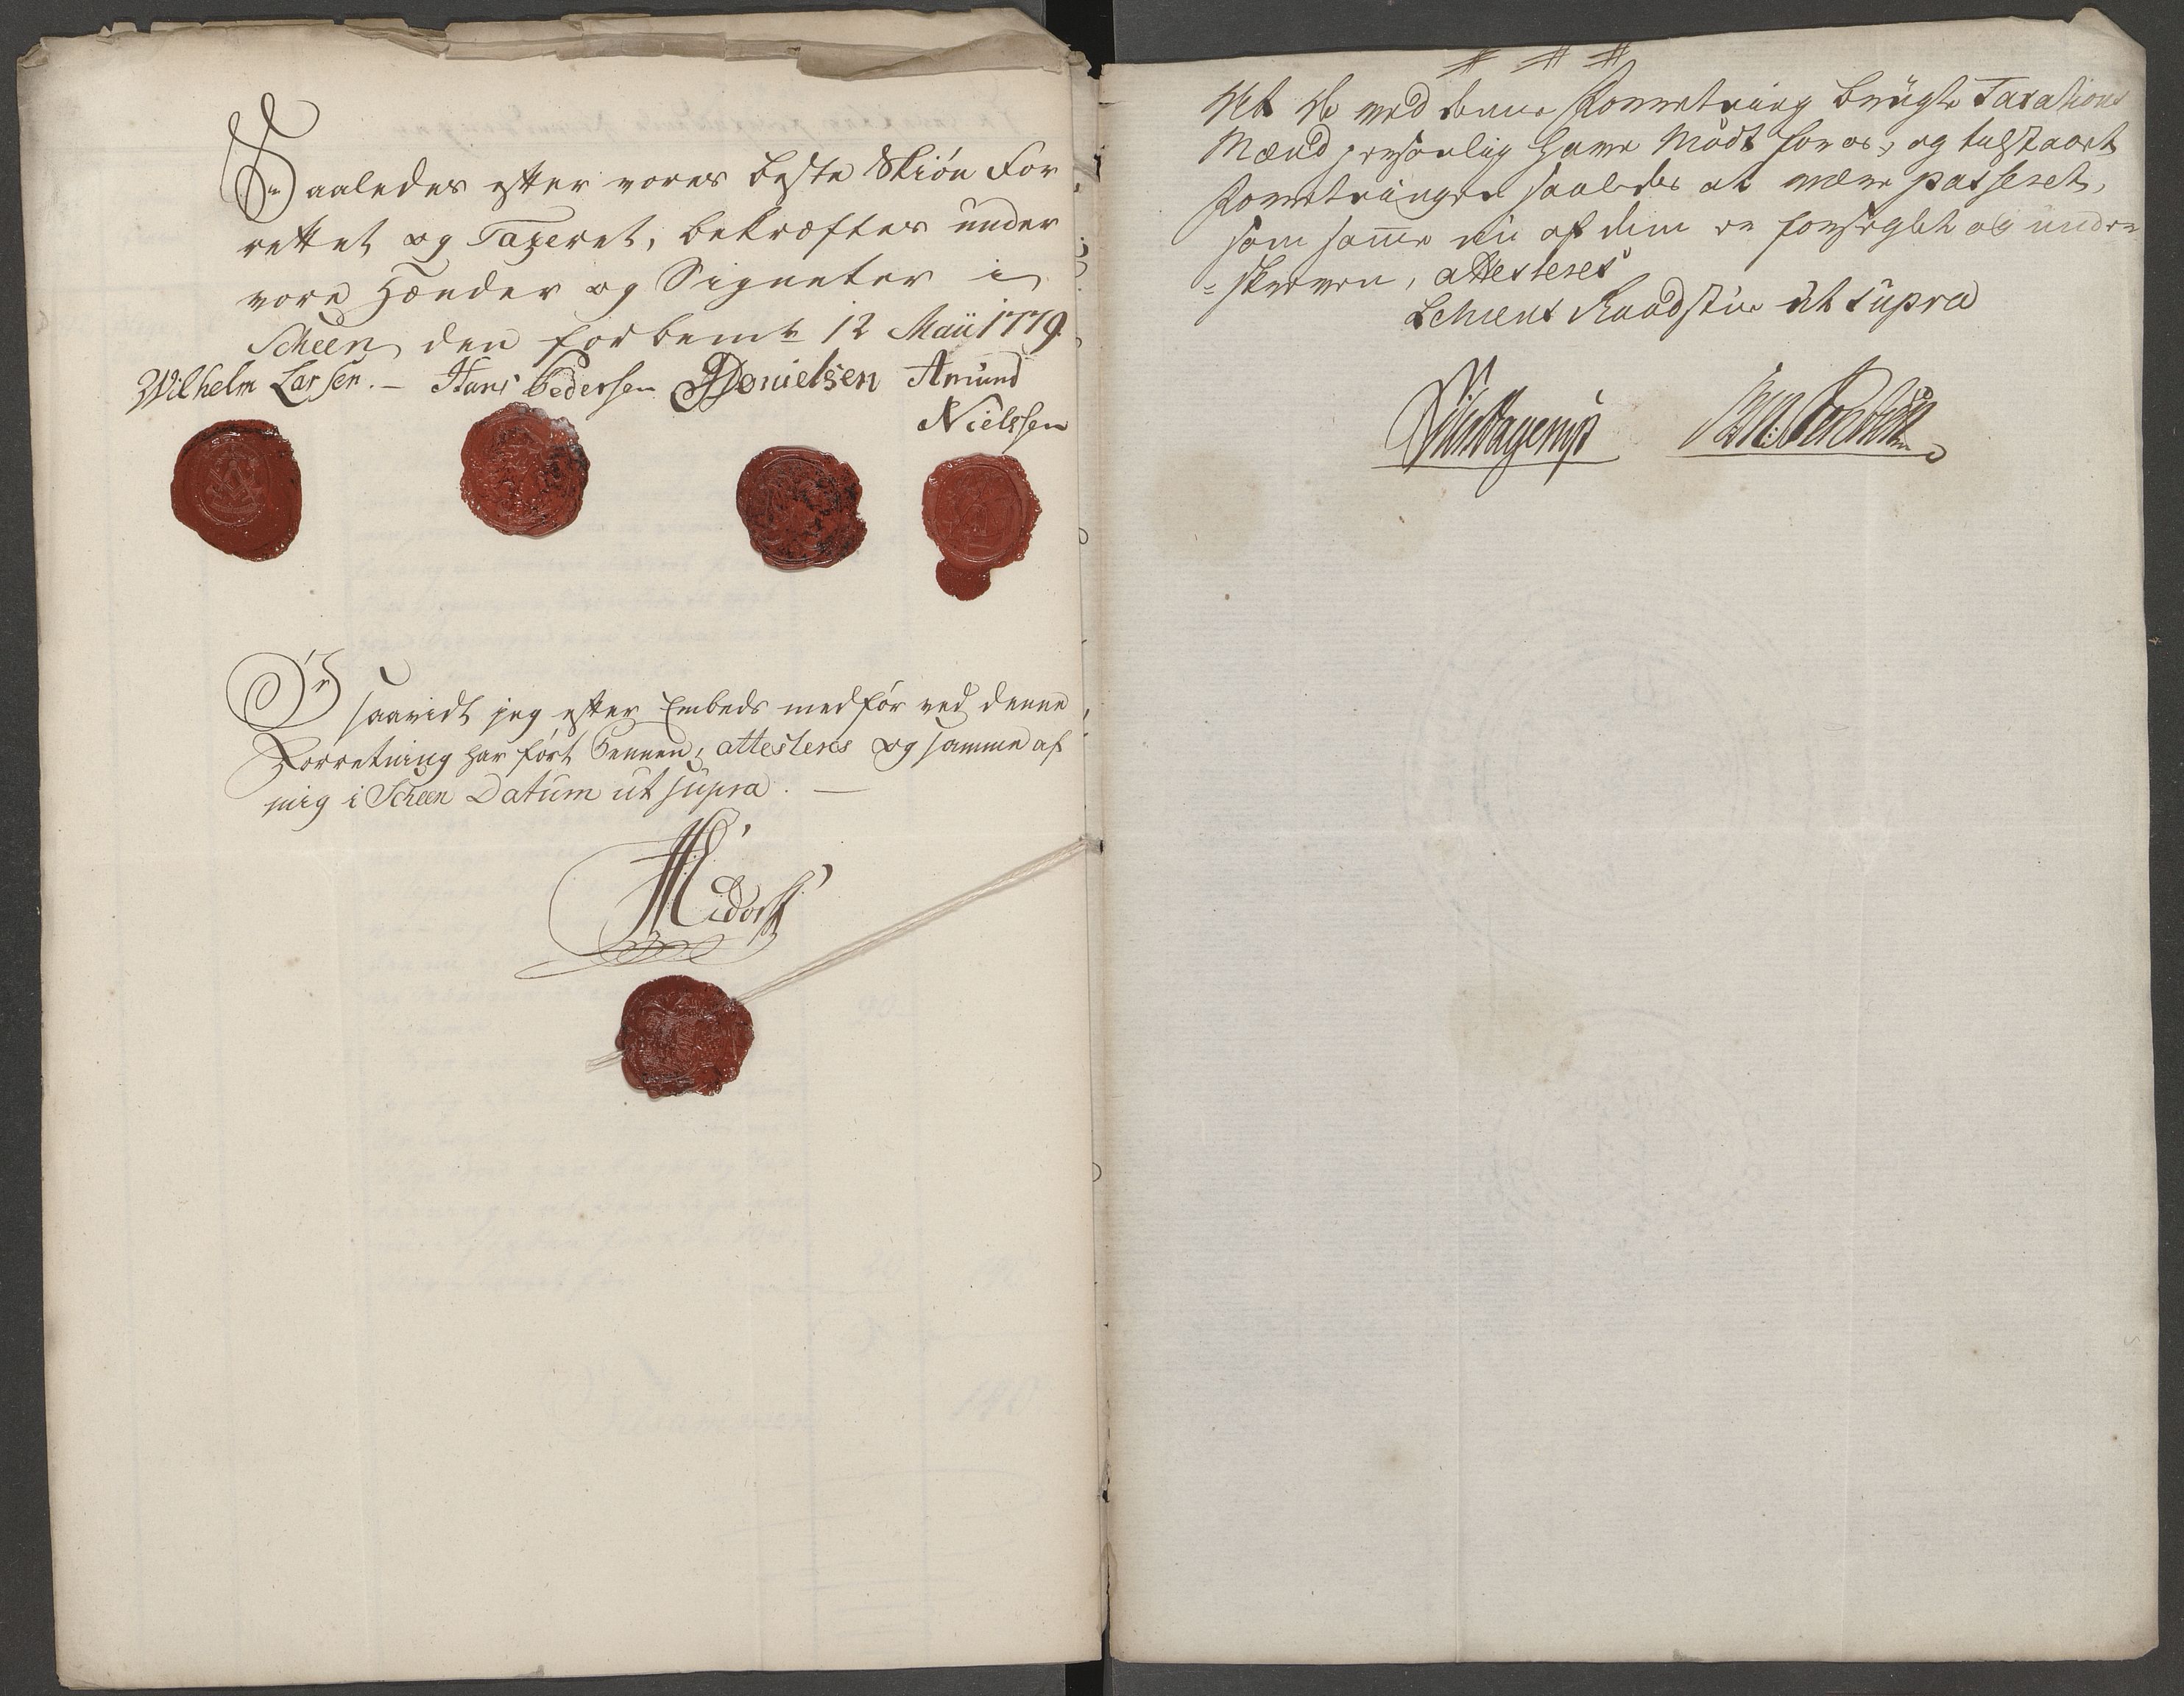 Saaledes efter vores beste Skiön For
rettet og Taxeret, bekræftes under
vore Hænder og Signeter i
Scheen den forbemte 12 Maii 1779.
Wilhelm Larsen. — Hans Pedersen Danielsen Amund
Nielssen
saavidt jeg efter Embeds medför ved denne
Forretning har fört Pennen, attesteres og samme af
mig i Scheen Datum ut supra. —
At de ved denne Forretning brugte Taxations
Mænd personlig have Mödt for os, og tilstaaet
Forretningen saaledes at være passeret,
som samme nu af dem er forseglet og under
-skreven, attesteres
Scheens Raadstue ut supra